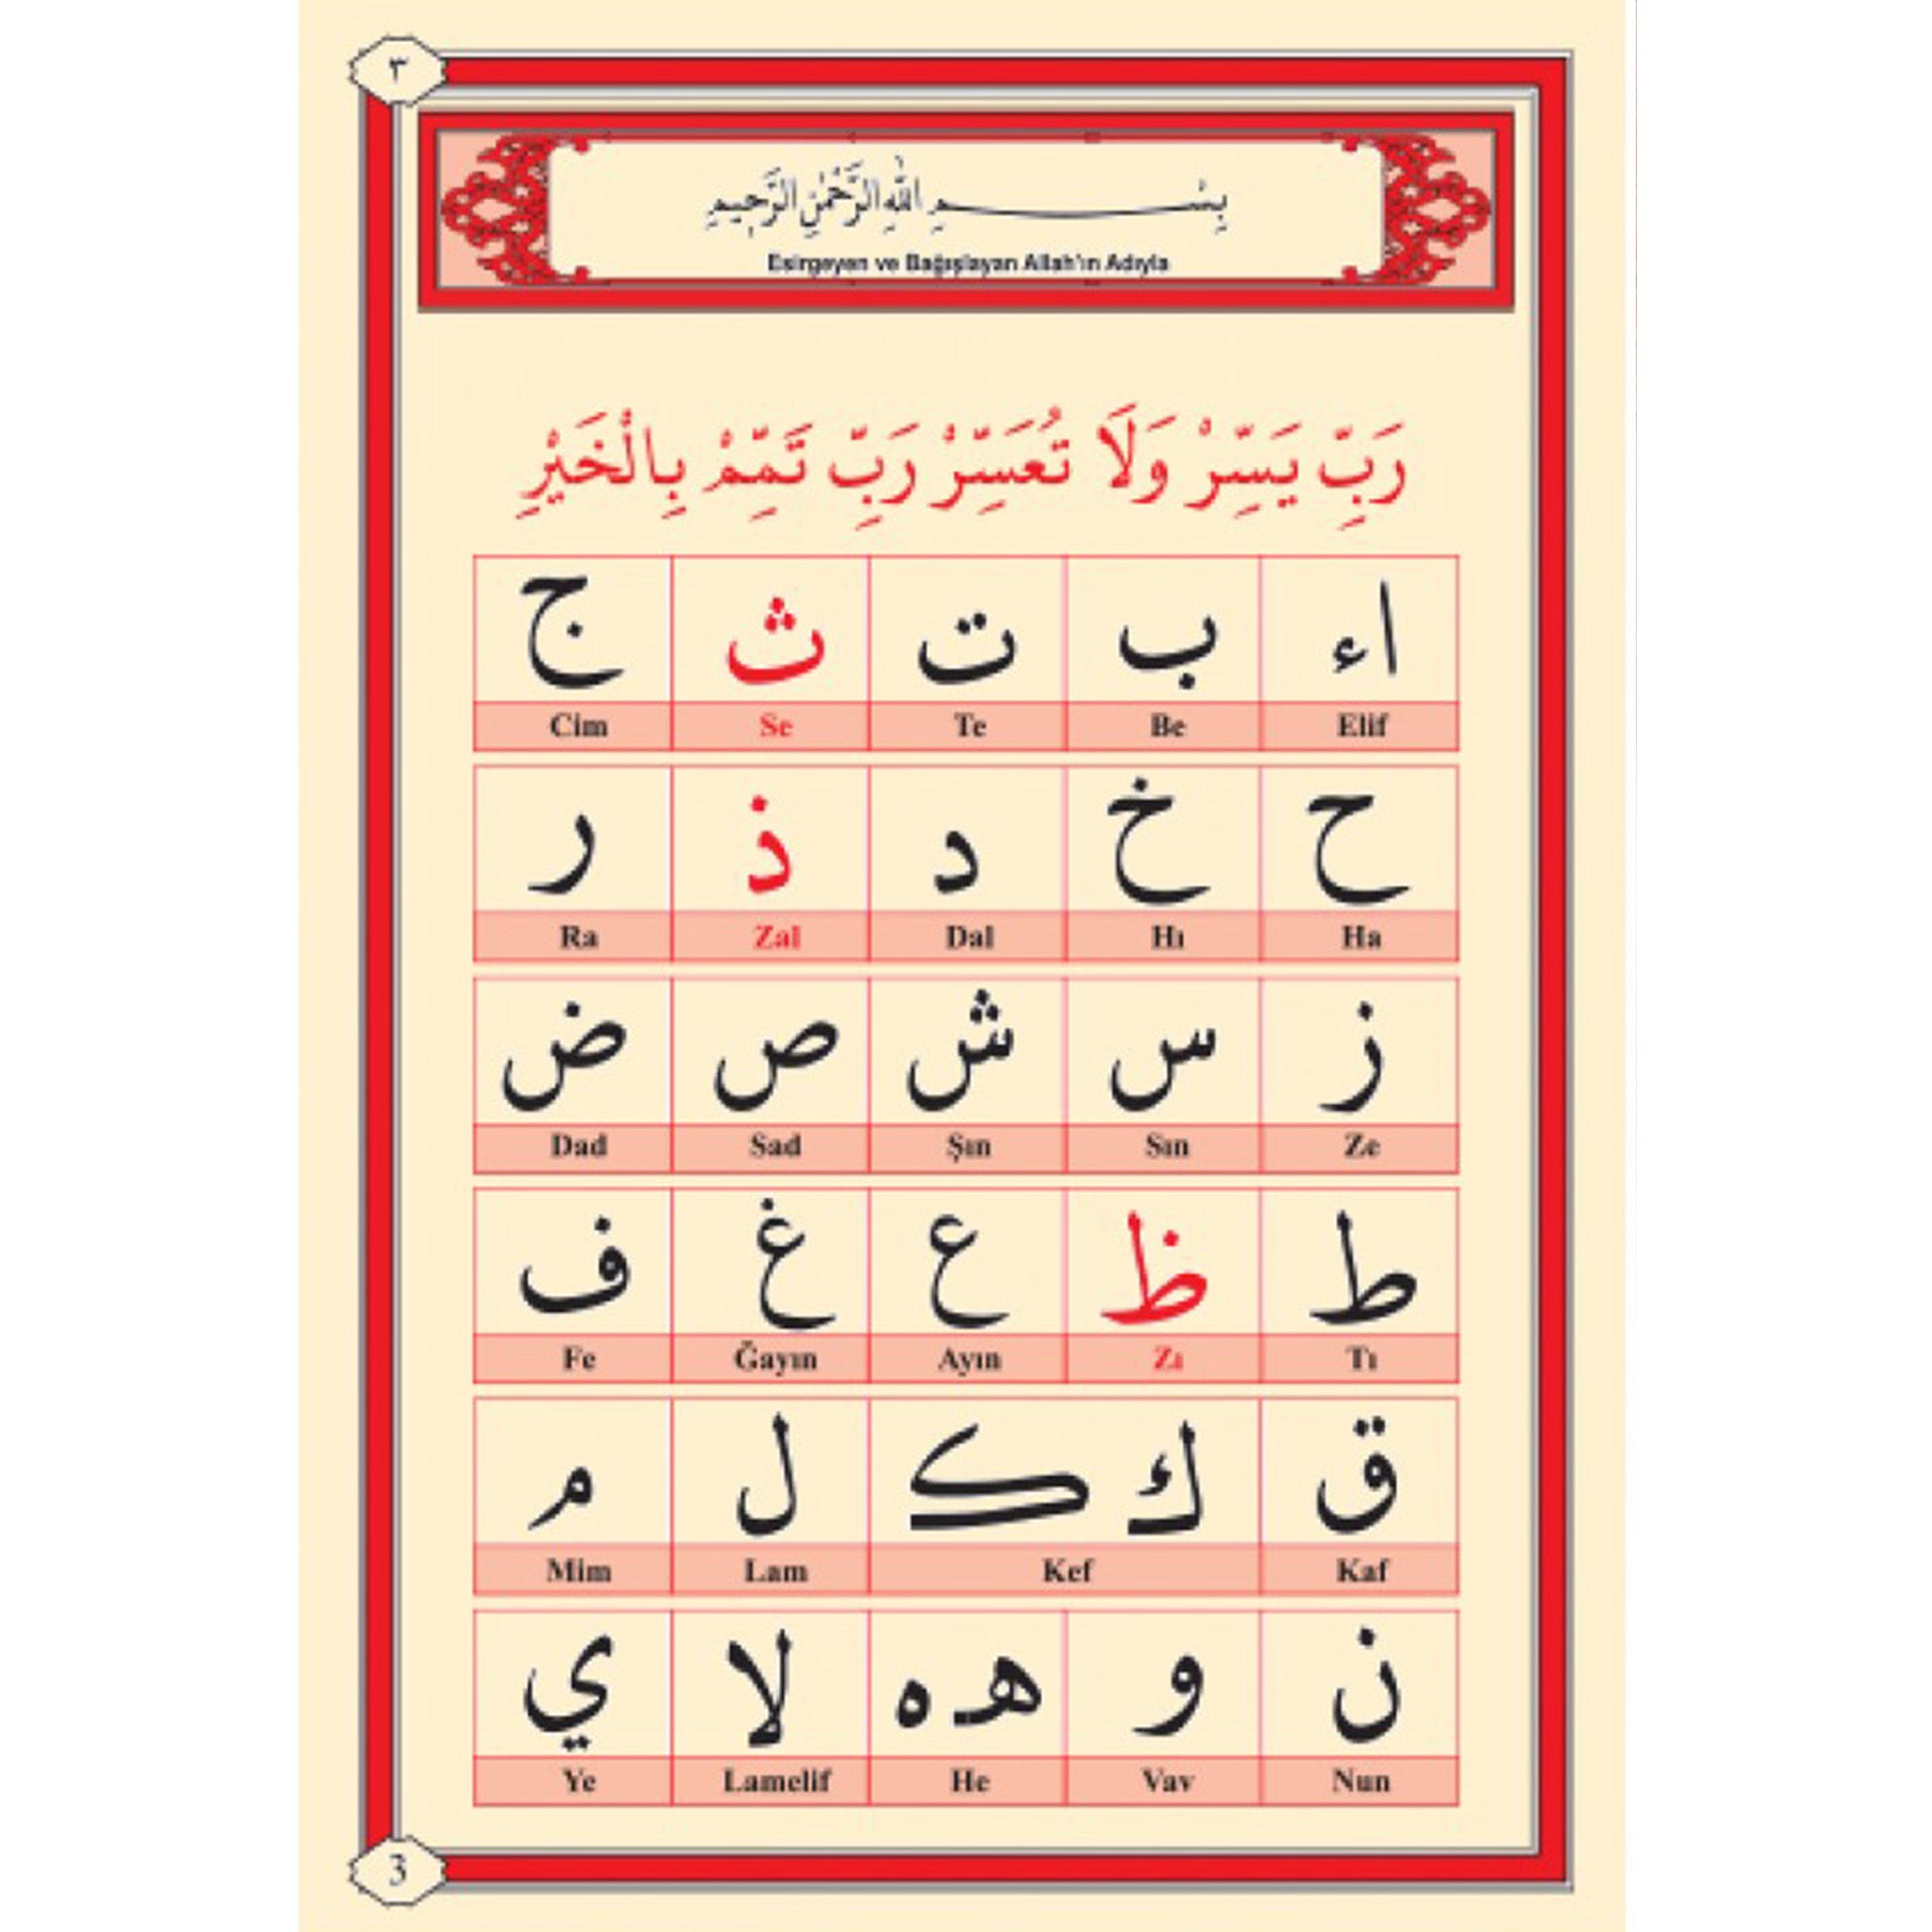 ٣
بِسْــــــــمِ اللّٰهِ الرَّحْمٰنِ الرَّحِيمِ
Esirgeyen ve Bağışlayan Allah'ın Adıyla
رَبِّ يَسِّرْ وَلَا تُعَسِّرْ رَبِّ تَمِّمْ بِالْخَيْرِ
اء ب ت ث ج
Elif Be Te Se Cim
ح خ د ذ ر
Ha Hı Dal Zal Ra
ز س ش ص ض
Ze Sın Şın Sad Dad
ط ظ ع غ ف
Tı Zı Ayın Ğayın Fe
ق ك ک ل م
Kaf Kef Lam Mim
ن و هـ ه لا ي
Nun Vav He Lamelif Ye
3